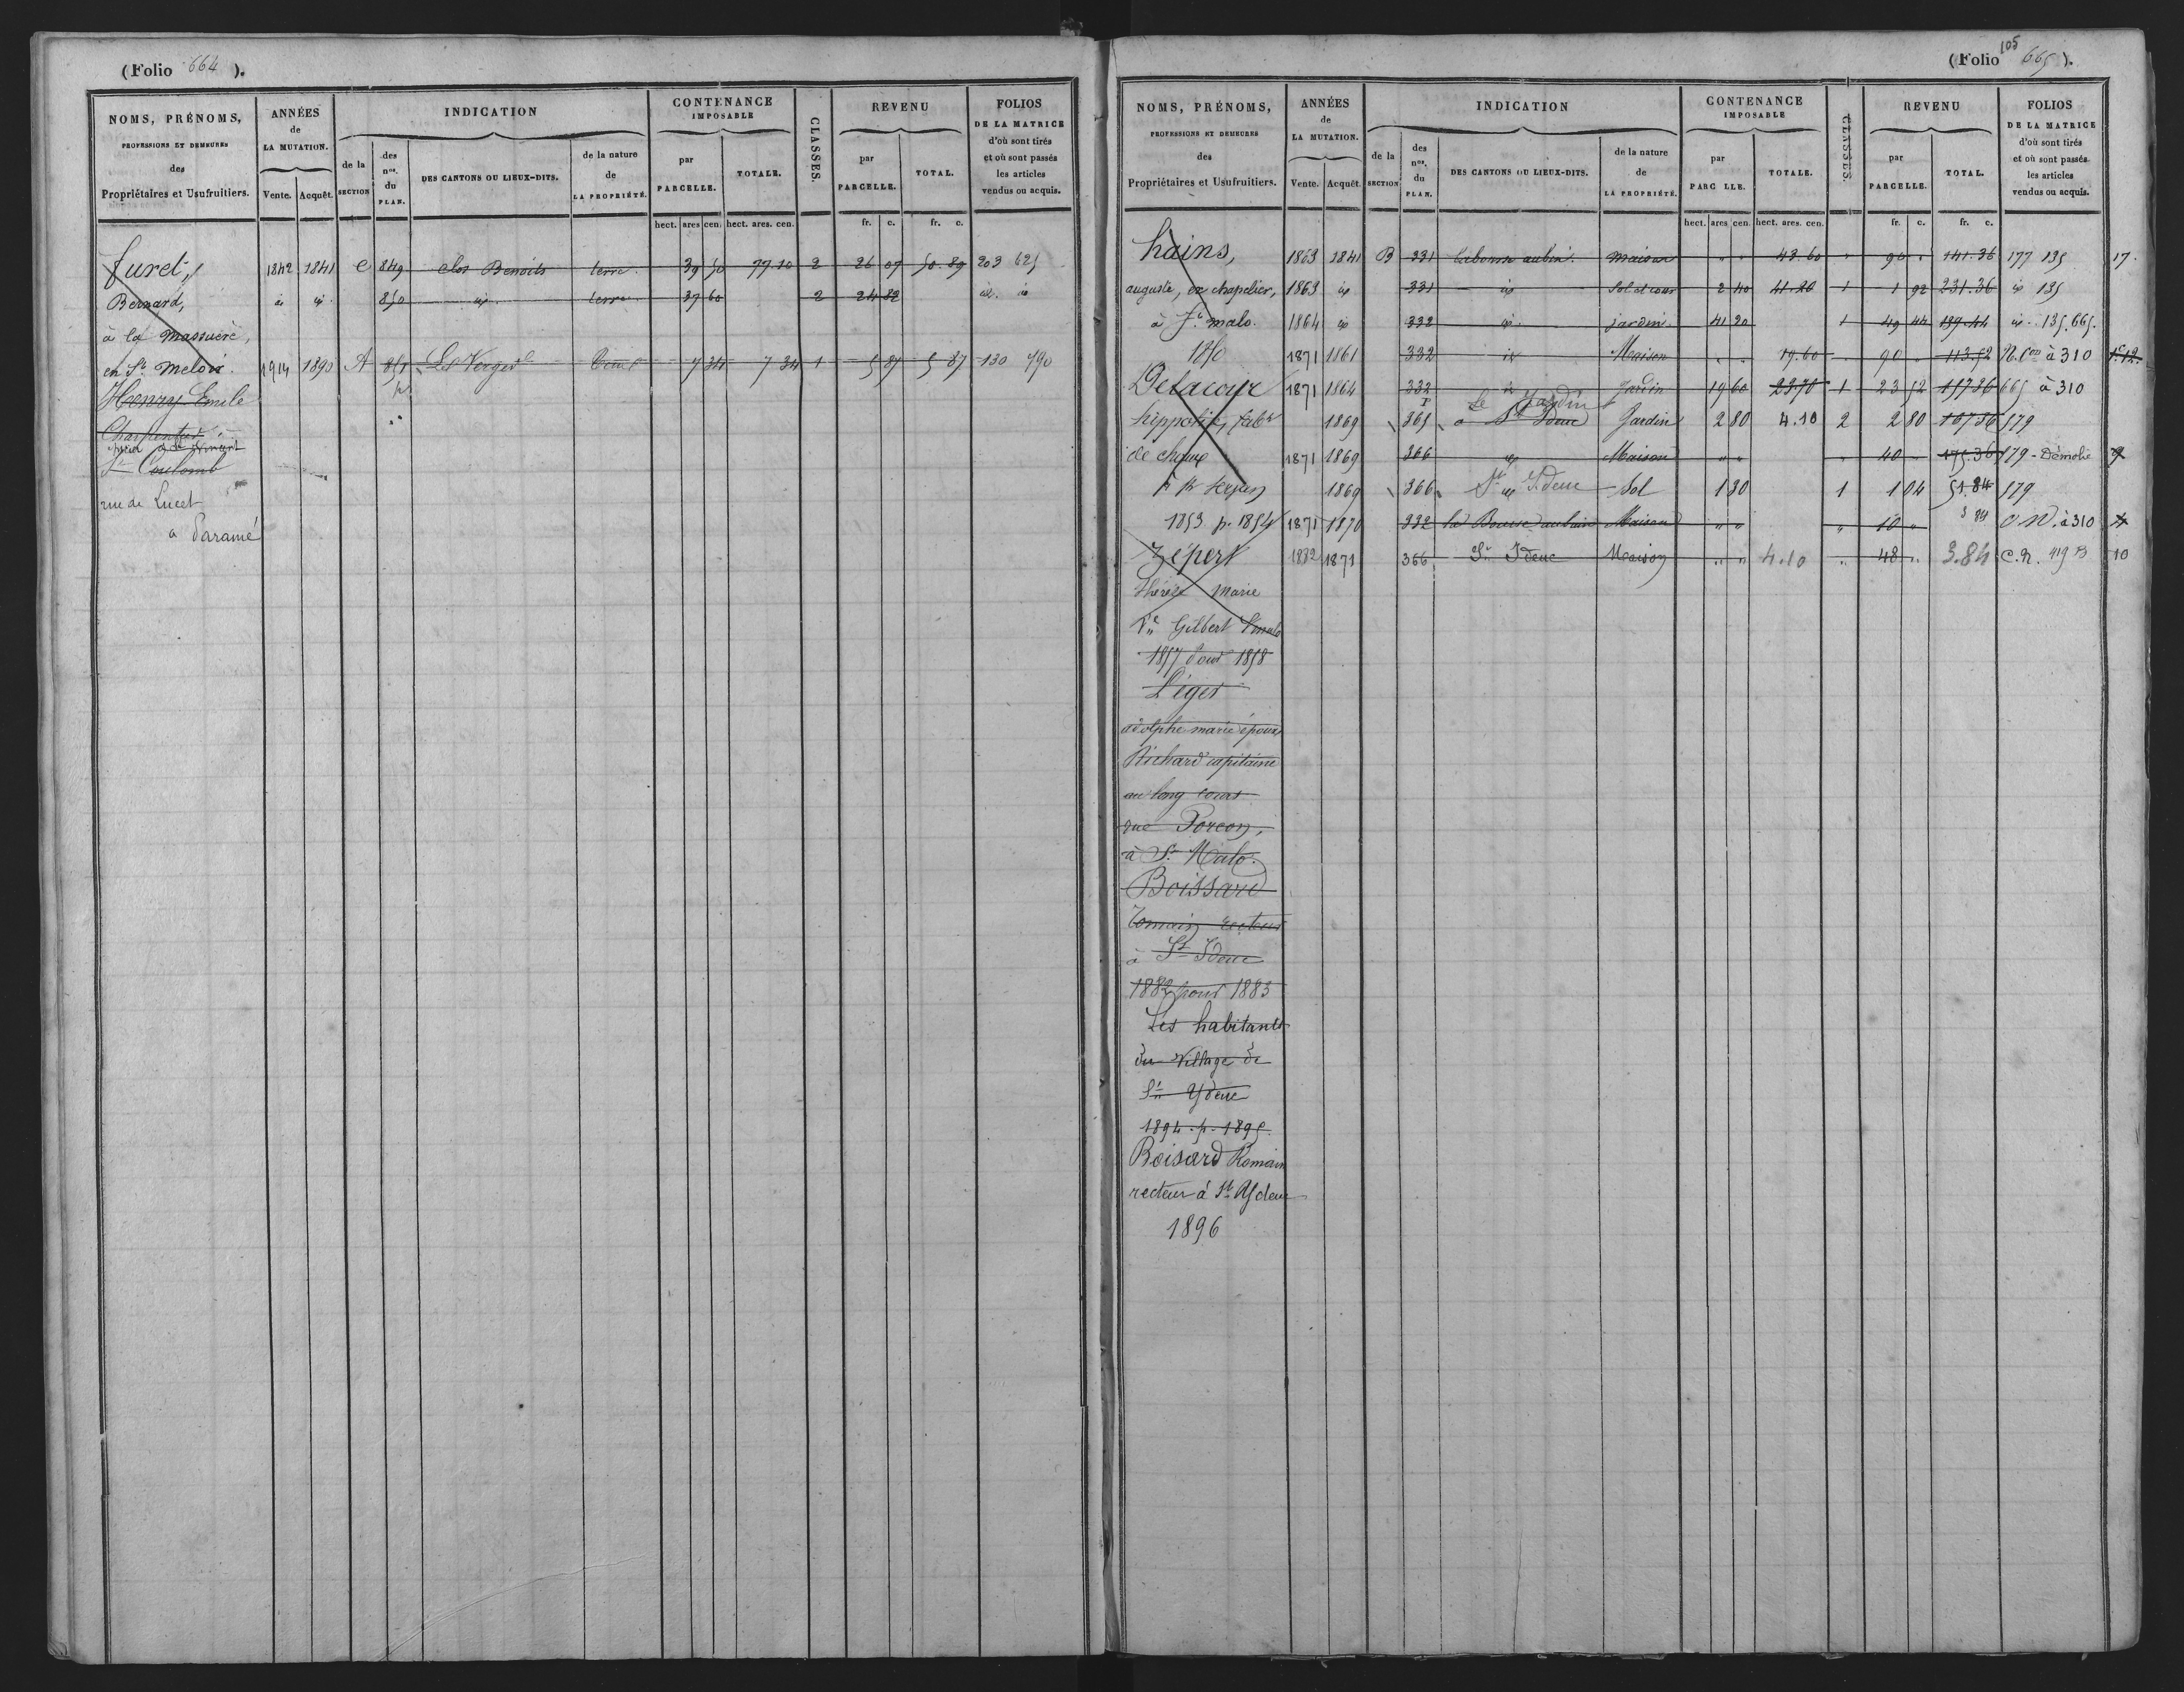 (Folio 664 ).
NOMS, PRÉNOMS,
PROFESSIONS ET DEMEURES
des
Propriétaires et Usufruitiers.
ANNÉES
de
LA MUTATION.
Vente. Acquêt.
INDICATION
de la
SECTION
des
nos.
du
PLAN.
DES CANTONS OU LIEUX-DITS.
de la nature
de
LA PROPRIÉTÉ.
CONTENANCE
IMPOSABLE
par
PARCELLE.
TOTALE.
hect. ares cen. hect. ares. cen.
CLASSES.
REVENU
par
PARCELLE.
TOTAL.
fr. c. fr. c.
FOLIOS
DE LA MATRICE
d'où sont tirés
et où sont passés
les articles
vendus ou acquis.
furet,
Bernard,
à la massuère,
en St. meloir.
Henry Emile
Charpentier
St Coulomb
rue de Lucet
a Paramé
1842 1841 C 849 clos Benoits terre 39 50 77 10 2 26 07 50.89 203 625
id id 850 id terre 37 60 2 24 82 id. id
1914 1890 A 851 p Le Verger 7 34 7 34 1 5 87 5 87 130 790
(Folio 665 ).
105
NOMS, PRÉNOMS,
PROFESSIONS ET DEMEURES
des
Propriétaires et Usufruitiers.
ANNÉES
de
LA MUTATION.
Vente. Acquêt.
INDICATION
de la
SECTION
des
nos.
du
PLAN.
DES CANTONS OU LIEUX-DITS.
de la nature
de
LA PROPRIÉTÉ.
CONTENANCE
IMPOSABLE
par
PARC LLE.
TOTALE.
hect. ares cen. hect. ares. cen.
CLASSES.
REVENU
par
PARCELLE.
TOTAL.
fr. c. fr. c.
FOLIOS
DE LA MATRICE
d'où sont tirés
et où sont passés
les articles
vendus ou acquis.
hains,
auguste, chapelier,
à St. malo.
1850
Delacour
hippolite, fabt
de chaux
1853. p. 1854
Zépert
Thérèse Marie
Ve Gilbert St malo
1857 pour 1858
Léger
adolphe marie époux
Richard capitaine
au long cours
rue Porcon,
à St. Malo.
Boissard
Romain recteur
à St Ideuc
1882 pour 1883
Les habitants
du Village de
St Ydeuc
1894. p. 1895.
Boisard Romain
recteur à St Ydeuc
1896
1863 1841 B 331 maison " " 43.60 " 90 " 141.36 177 135 17.
1863 id 331 id sol et cour 2 40 41 20 1 1 92 231.36 id 135
1864 id 332 id. jardin 41 20 1 49 44 139.44 id. 135.665.
1871 1861 332 id Maison " " 19.60 90 " 113.52 N. Con à 310
1871 1864 332 id Jardin 19 60 23 70 1 23 52 117 36 665 à 310
1869 365 Le Jardin à St Ideuc Jardin 2 80 4.10 2 2 80 107 36 579
1871 1869 366 id Maison " " " 40 " 175.36 579 - Démolie 9
1869 366 St Ideuc Sol 1 30 1 1 04 51.84 579
1871 1870 332 Maison " " " 10 " 3 84 à 310
1882 1871 366 St Ideuc Maison " " 4.10 " 48 " 3.84 C.N. 419 B 10